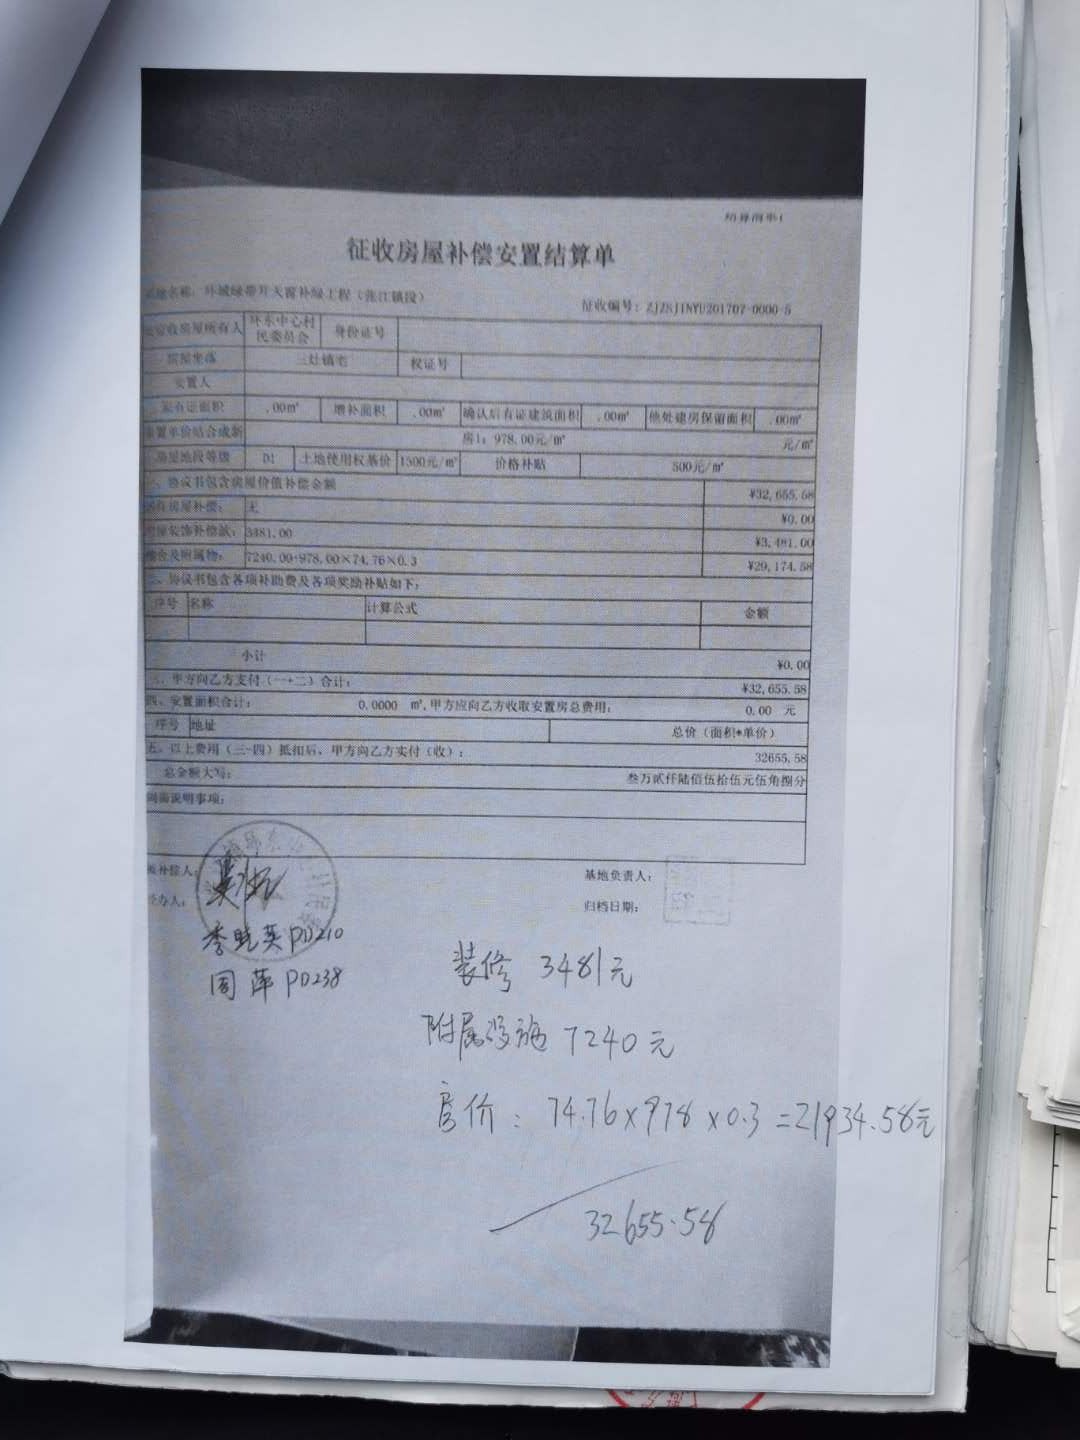 结算清单1
征收房屋补偿安置结算单
基地名称：环城绿带开天窗补绿工程（张江镇段）
征收编号：ZJZKJINYU201707-0000-5
被征收房屋所有人 环东中心村民委员会 身份证号
房屋坐落 三灶镇宅 权证号
安置人
原有证面积 .00㎡ 增补面积 .00㎡ 确认后有证建筑面积 .00㎡ 他处建房保留面积 .00㎡
重置单价结合成新 房1：978.00元/㎡ 元/㎡
房屋地段等级 D1 土地使用权基价 1500元/㎡ 价格补贴 500元/㎡
一、协议书包含房屋价值补偿金额 ¥32,655.58
所有房屋补偿： 无 ¥0.00
房屋装饰补偿款： 3481.00 ¥3,481.00
棚舍及附属物： 7240.00+978.00×74.76×0.3 ¥29,174.58
二、协议书包含各项补助费及各项奖励补贴如下：
序号 名称 计算公式 金额
小计 ¥0.00
三、甲方向乙方支付（一+二）合计： ¥32,655.58
四、安置面积合计： 0.0000 ㎡，甲方应向乙方收取安置房总费用： 0.00 元
序号 地址 总价（面积*单价）
五、以上费用（三-四）抵扣后、甲方向乙方实付（收）： 32655.58
总金额大写： 叁万贰仟陆佰伍拾伍元伍角捌分
尚需说明事项：
被补偿人： 基地负责人：
经办人： 归档日期：
季晓英 PD210
周萍 PD238
装修 3481元
附属设施 7240元
房价：74.76×978×0.3=21934.58元
32655.58